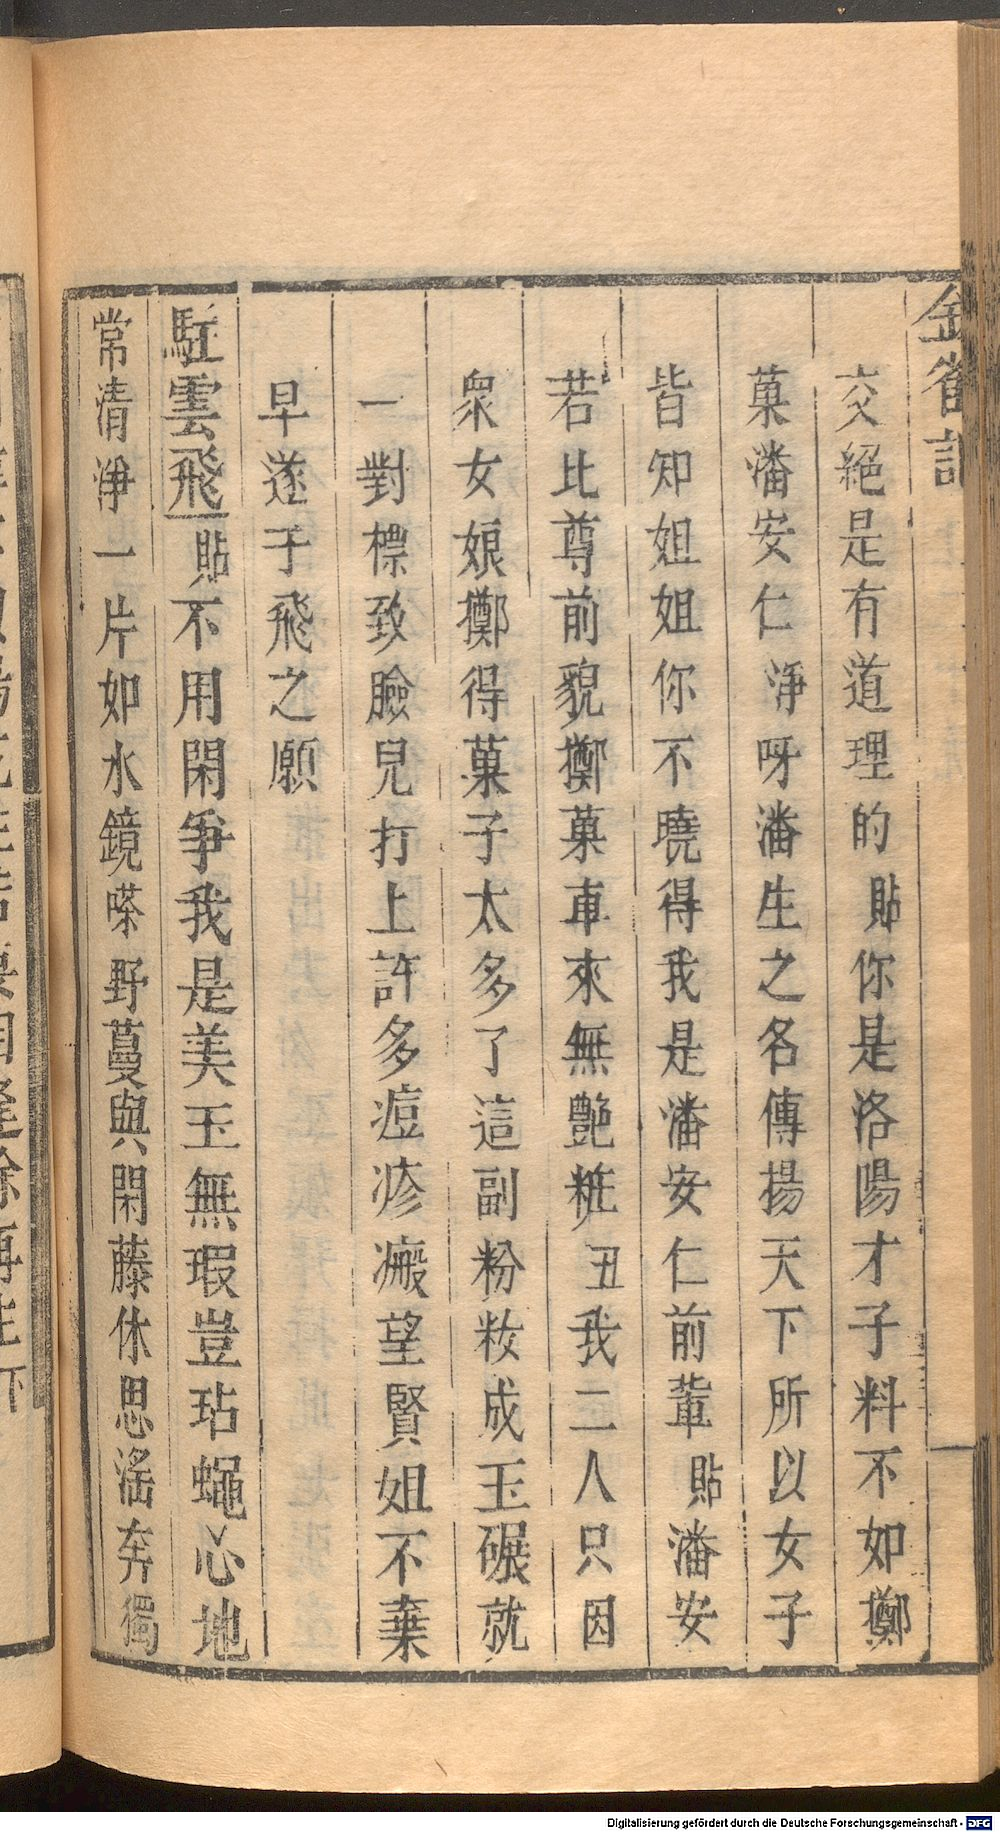 金雀記
交絕是有道理的貼你是洛陽才子料不如擲
菓潘安仁淨呀潘生之名傳揚天下所以女子
皆知姐姐你不曉得我是潘安仁前輩貼潘安
若比尊前貌擲菓車來無艷粧丑我二人只因
衆女娘擲得菓子太多了這副粉妝成玉碾就
一對標致臉兒打上許多痘疹瘢望賢姐不棄
早遂于飛之願
駐雲飛貼不用閑爭我是美玉無瑕豈玷蠅心地
常清淨一片如水鏡嗏野蔓與閑藤休思滛奔獨
Digitalisierung gefördert durch die Deutsche Forschungsgemeinschaft - DFG